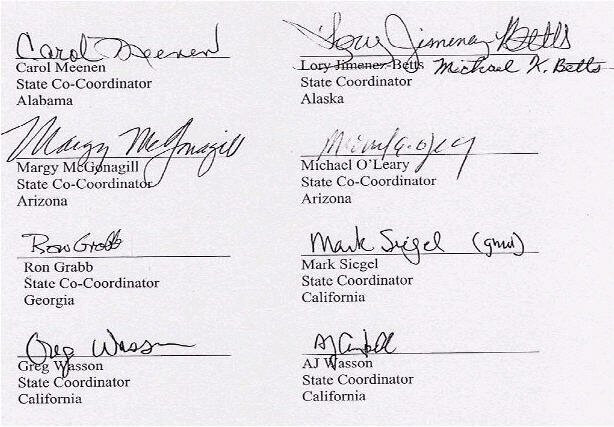 Carol Meenen
Carol Meenen
State Co-Coordinator
Alabama
Lory Jimenez Betts
Lory Jimenez-Betts Michael K. Betts
State Coordinator
Alaska
Margy McGonagill
Margy McGonagill
State Co-Coordinator
Arizona
Michael O'Leary
State Co-Coordinator
Arizona
Ron Grabb
Ron Grabb
State Co-Coordinator
Georgia
Mark Siegel (gmw)
Mark Siegel
State Coordinator
California
Greg Wasson
Greg Wasson
State Coordinator
California
AJ
AJ Wasson
State Coordinator
California